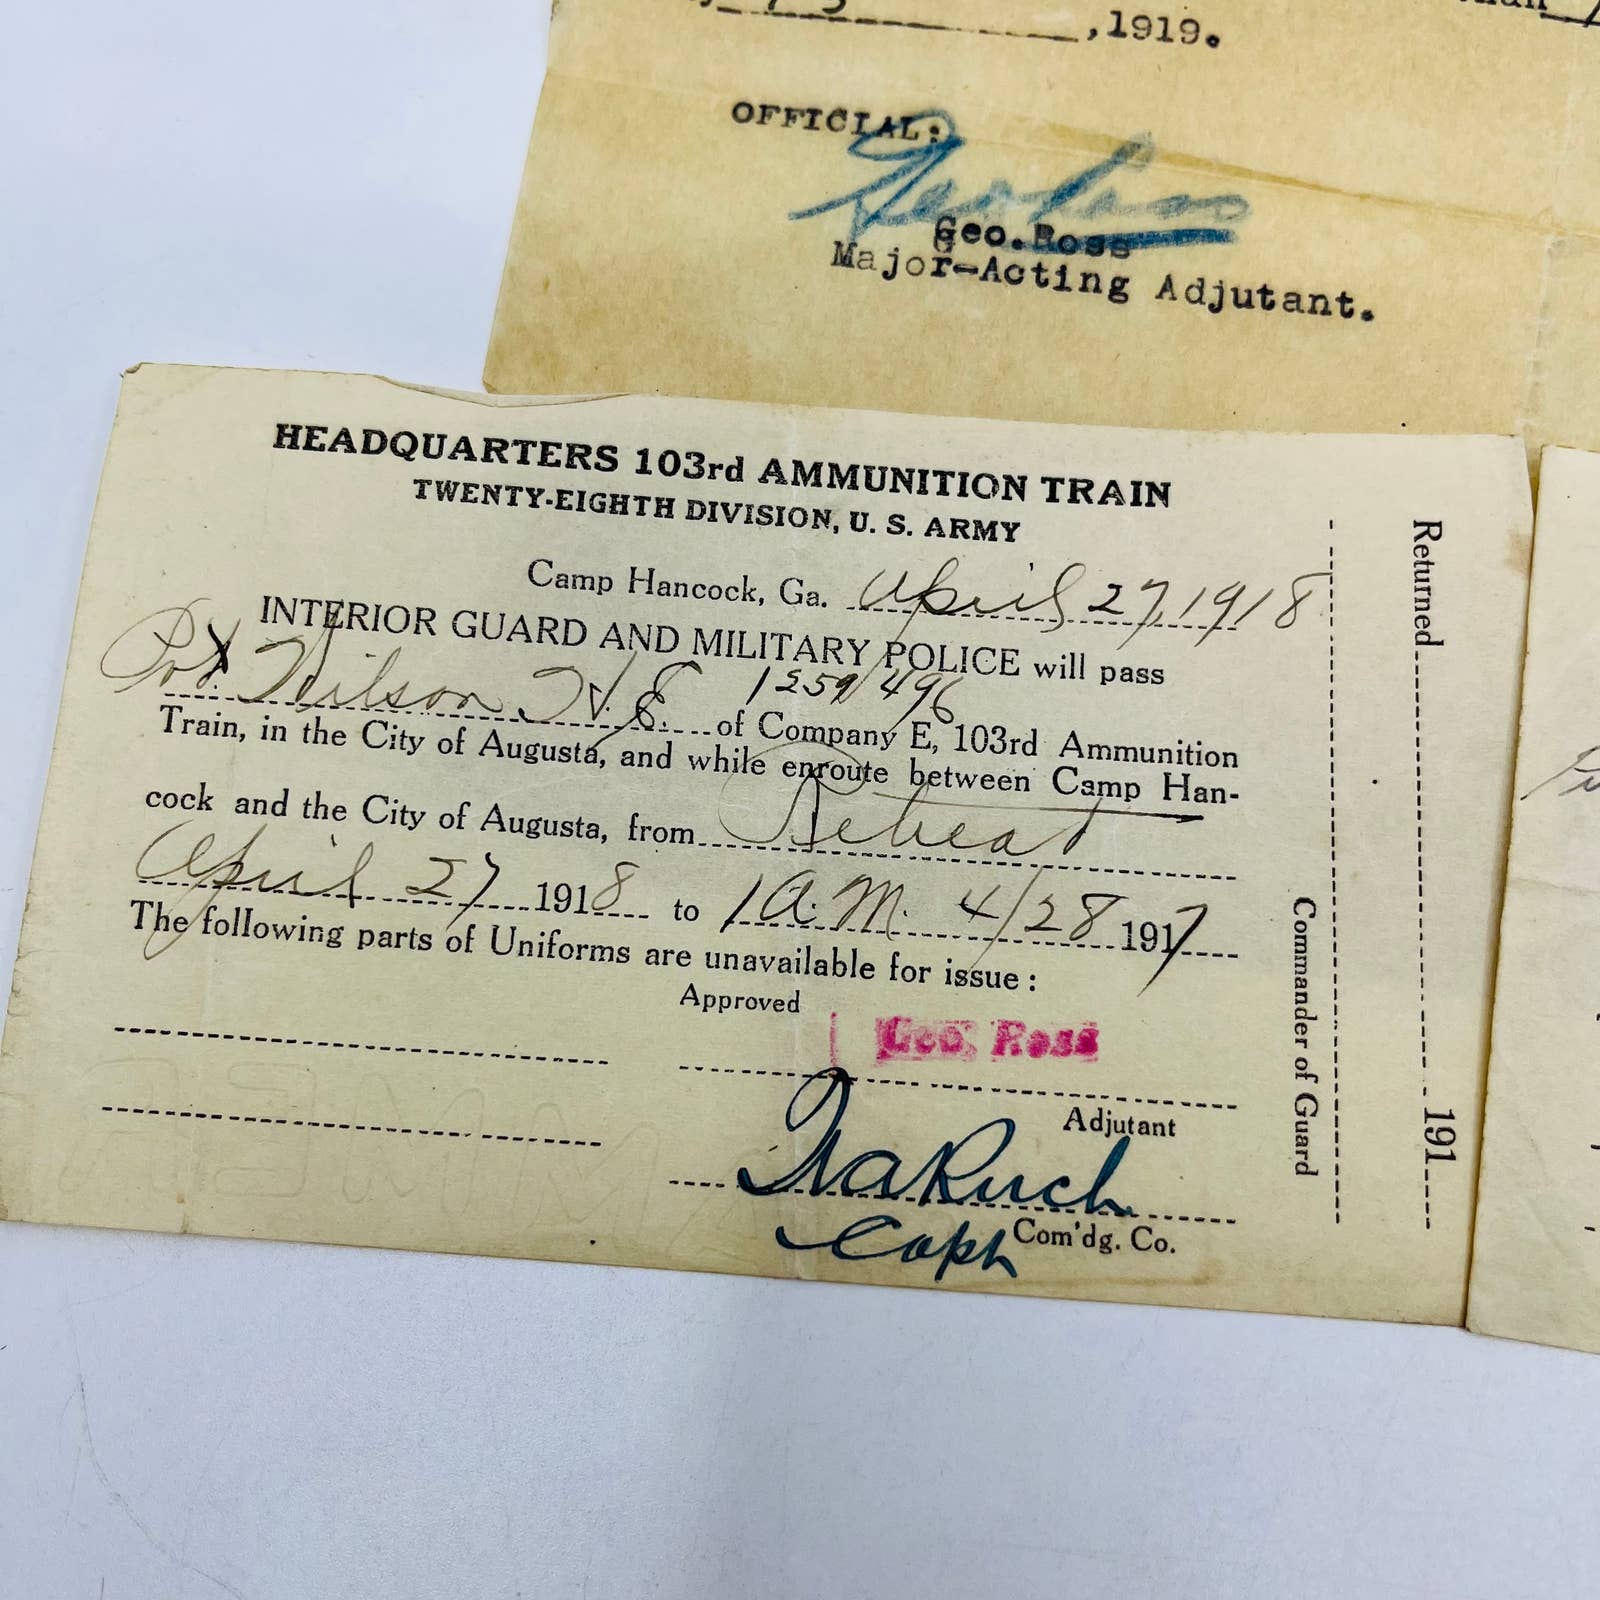 , 1919.
OFFICIAL:
Geo. Ross
Geo. Ross
Major-Acting Adjutant.
HEADQUARTERS 103rd AMMUNITION TRAIN
TWENTY-EIGHTH DIVISION, U. S. ARMY
Camp Hancock, Ga. April 27, 1918
INTERIOR GUARD AND MILITARY POLICE will pass
Pvt. Wilson H. E. 1259496 of Company E, 103rd Ammunition
Train, in the City of Augusta, and while enroute between Camp Han-
cock and the City of Augusta, from Retreat
April 27 1918 to 1 A. M. 4/28 1917
The following parts of Uniforms are unavailable for issue:
Approved
Geo. Ross
Adjutant
Capt Com'dg. Co.
Commander of Guard
Returned 191